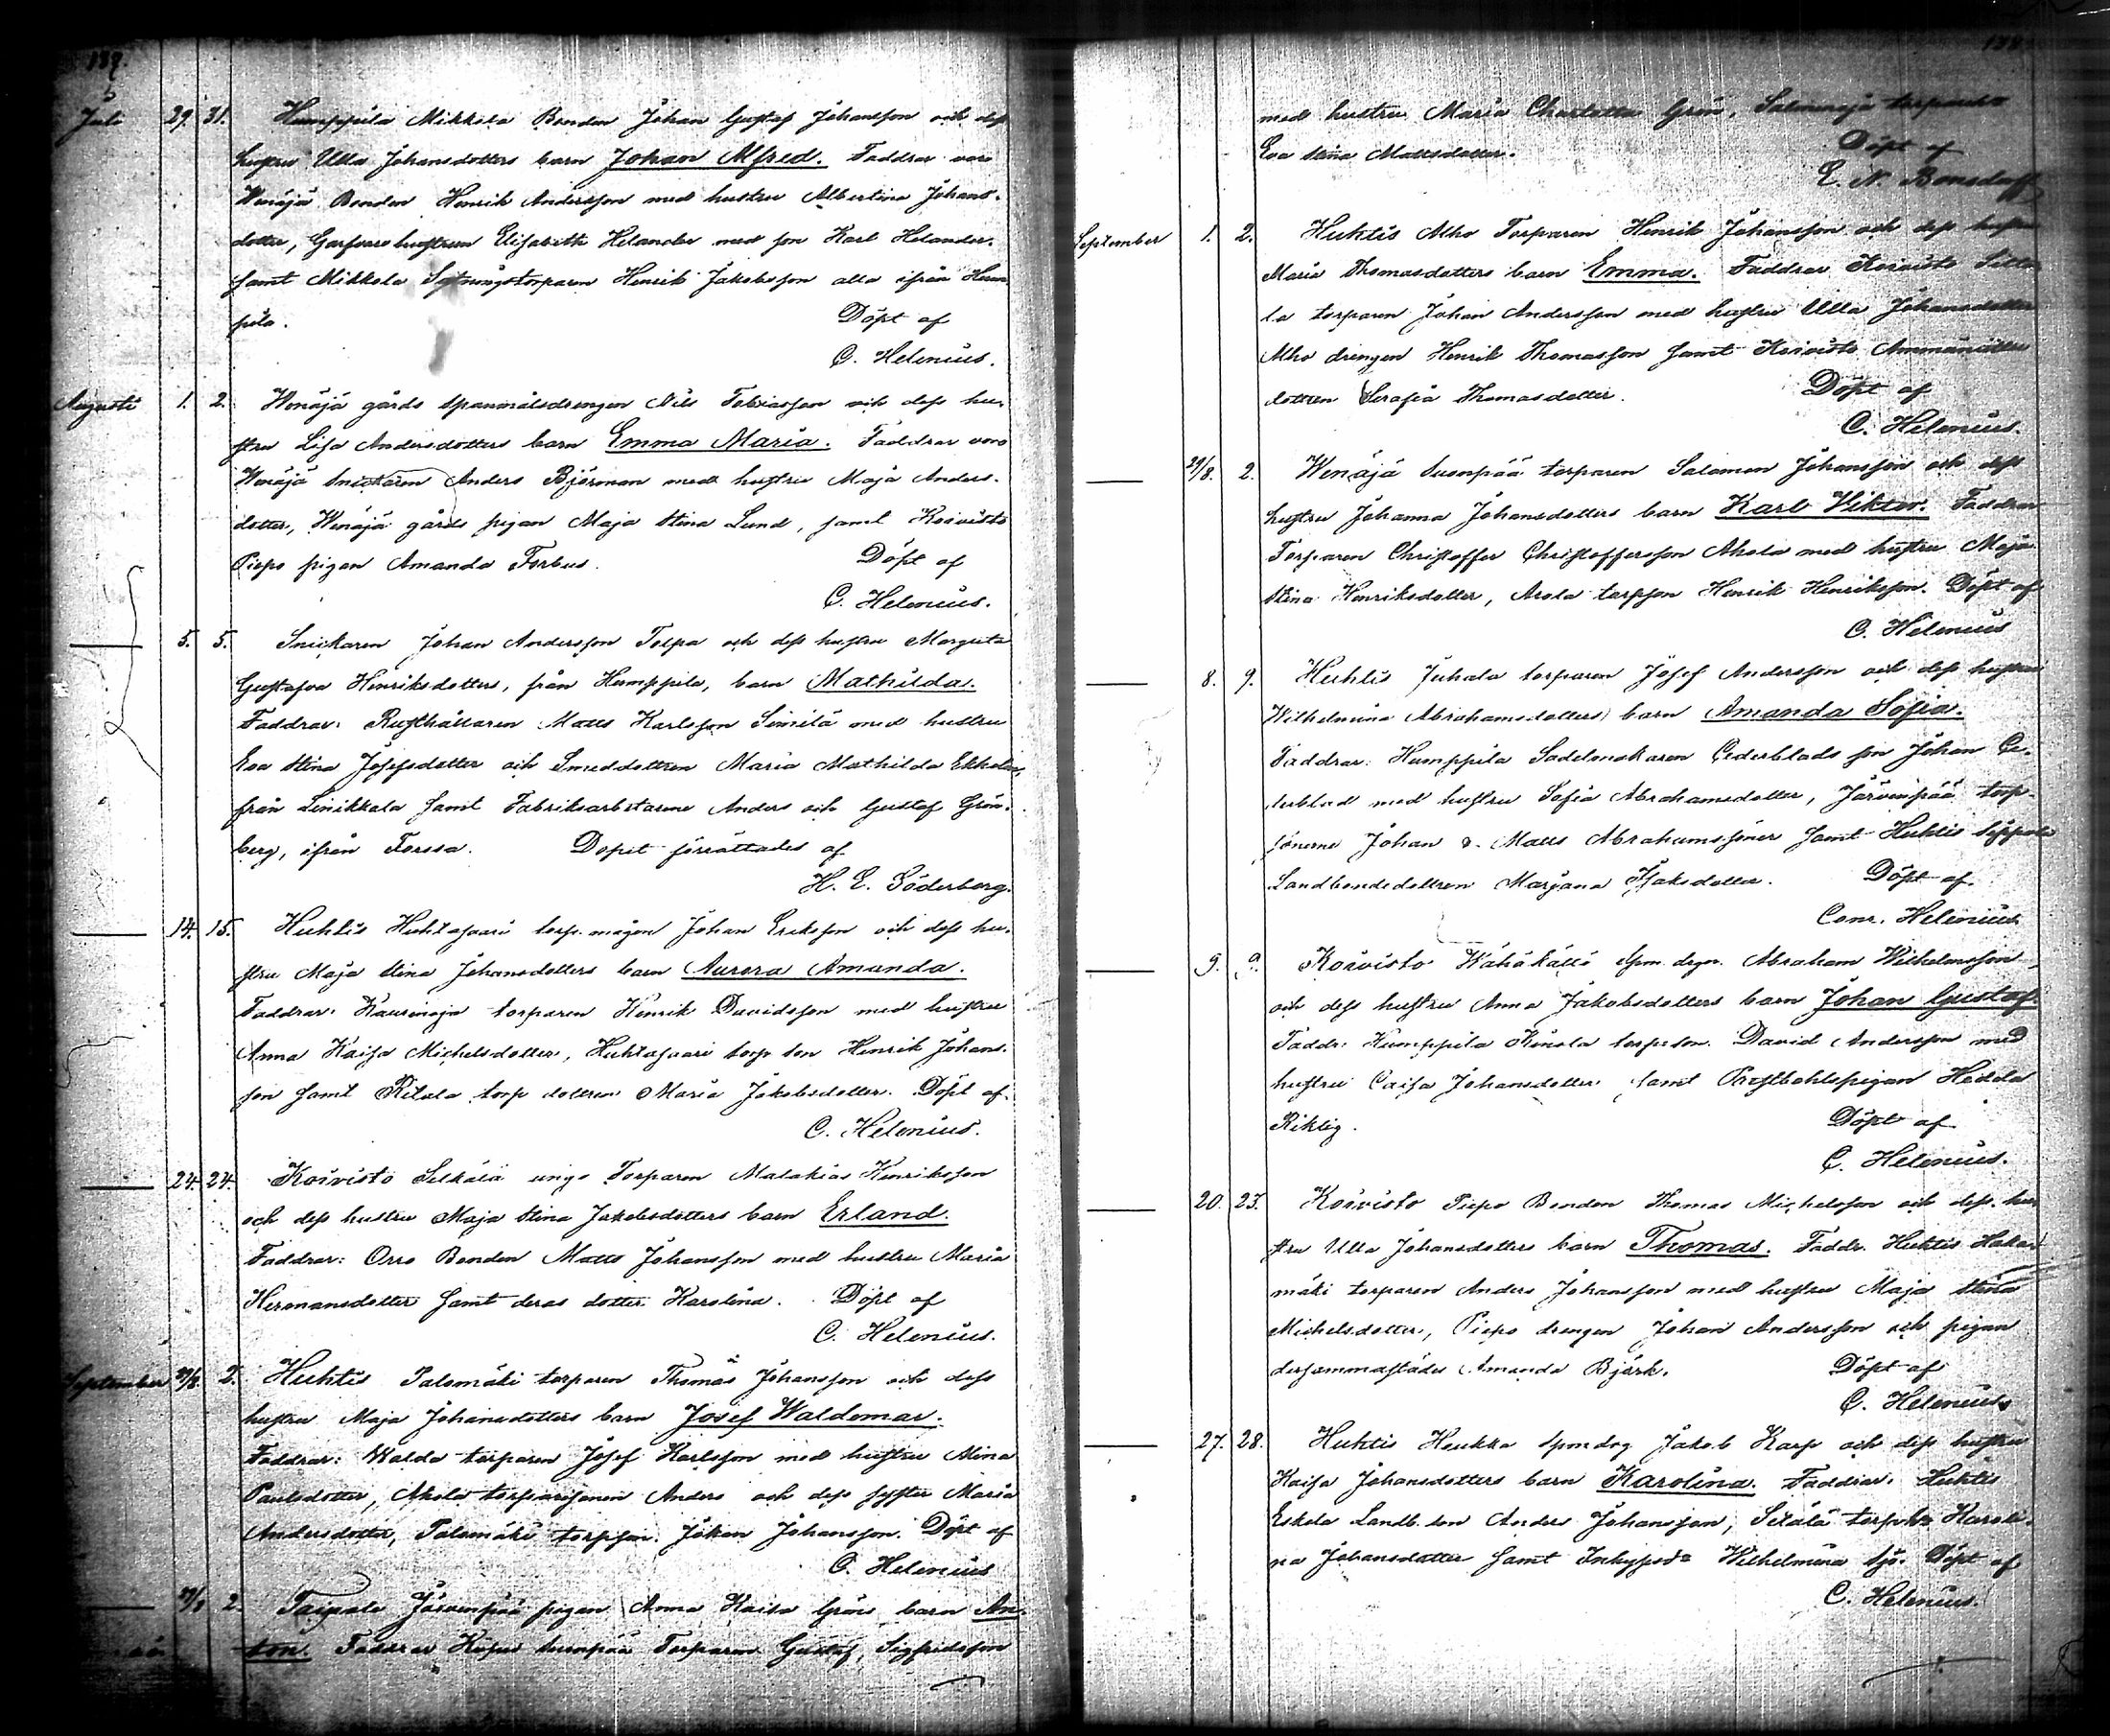 189.
Juli 29. 31. Humppila Mikkola Bonden Johan Gustaf Johansson och dess
hustru Ulla Johansdotters barn Johan Alfred. Faddrar voro
Wenäjä Bonden Henrik Andersson med hustru Albertina Johans-
dotter, Garfvarehustrun Elisabeth Helander med son Karl Helander.
samt Mikkola Sytningstorparen Henrik Jakobsson alla ifrån Hum
pila. Döpt af
C. Helenius.
Augusti 1. 2. Wenäjä gårds Spanmålsdrengen Nils Tobiasson och dess hu-
stru Lisa Andersdotters barn Emma Maria. Faddrar voro
Wenäjä Snickaren Anders Björman med hustru Maja Anders-
dotter, Wenäjä gårds pigan Maja Stina Lund, samt Koivisto
Piepo pigan Amanda Forbus. Döpt af
C. Helenius.
5. 5. Snickaren Johan Andersson Tolpa och dess hustru Margreta
Gustafva Henriksdotters, från Humppila, barn Mathilda.
Faddrar: Rusthållaren Matts Karlsson Simitä med hustru
Eva Stina Josefsdotter och Smeddottren Maria Mathilda Ekholm,
från Linikkala samt Fabriksarbetarene Anders och Gustaf Grön-
berg, ifrån Forssa. Dopet förrättades af
H. E. Söderberg.
14. 15. Huhtis Huhtasaari torp.mågen Johan Eriksson och dess hu-
stru Maja Stina Johansdotters barn Aurora Amanda.
Faddrar: Kausinoja torparen Henrik Davidsson med hustru
Anna Kaisa Michelsdotter, Huhtasaari torp son Henrik Johans-
son samt Ritala torp dottren Maria Jakobsdotter. Döpt af
C. Helenius.
24. 24. Koivisto Selkälä unge Torparen Malakias Henriksson
och dess hustru Maja Stina Jakobsdotters barn Erland.
Faddrar: Orro Bonden Matts Johansson med hustru Maria
Hermansdotter samt deras dotter Karolina. Döpt af
C. Helenius.
September 29/8. 2. Huhtis Palomäki torparen Thomas Johansson och dess
hustru Maja Johansdotters barn Josef Waldemar.
Faddrar: Walda torparen Josef Karlsson med hustru Mina
Paulsdotter, Ahola torparesonen Anders och dess syster Maria
Andersdotter, Palomäki torpson. Johan Johansson. Döpt af
C. Helenius
2. Taipale Järvenpää pigan Anna Kaisa Gröns barn An-
ton. Faddrar Suonpää Torparen Gustaf Sigfridsson
med hustru Maria Charlotta Grön,
Eva Stina Mattsdotter. Döpt af
E. N. Bonsdorff
September 1. 2. Huhtis Alho Torparen Henrik Johansson och dess hustru
Maria Thomasdotters barn Emma. Faddrar Koivisto
la torparen Johan Andersson med hustru Ulla Johansdotter
Alho drengen Henrik Thomasson samt Koivisto
dottren Serafia Thomasdotter. Döpt af
C. Helenius.
29/8. 2. Wenäjä Suonpää torparen Salomon Johansson och dess
hustru Johanna Johansdotters barn Karl Viktor. Faddrar
Torparen Christoffer Christoffersson Ahola med hustru Maja
Stina Henriksdotter, Arola torpson Henrik Henriksson. Döpt af
C. Helenius
8. 9. Huhtis Juhala torparen Josef Andersson och dess hustru
Wilhelmina Abrahamsdotters barn Amanda Sofia.
Faddrar: Humppila Sadelmakaren Cederblads son Johan Ce-
derblad med hustru Sofia Abrahamsdotter, Järvenpää torp-
sönerne Johan & Matts Abrahamssöner samt Huhtis Seppälä
Landbondedottren Marjana Isaksdotter. Döpt af.
Conr. Helenius
9. 9. Koivisto Kähäkättö Spm. drgn. Abraham Wilhelmsson
och dess hustru Anna Jakobsdotters barn Johan Gustaf.
Faddr. Humppila Kinola torpson. David Andersson med
hustru Caisa Johansdotter samt Prestbohlspigan Hedda
Riktig. Döpt af
C. Helenius.
20. 23. Koivisto Piepo Bonden Thomas Michelsson och dess hu
stru Ulla Johansdotters barn Thomas. Faddr. Huhtis Haka-
mäki torparen Anders Johansson med hustru Maja Stina
Michelsdotter, Piepo drengen Johan Andersson och pigan
dersammastädes Amanda Björk. Döpt af
C. Helenius
27. 28. Huhtis Heukka Spmdrg Jakob Karp och dess hustru
Kaisa Johansdotters barn Karolina. Faddrar. Huhtis
Eskola Landb. son Anders Johansson, Seälä Karoli-
na Johansdotter samt Inhysesd:r Wilhelmina Sjö. Döpt af
C. Helenius.